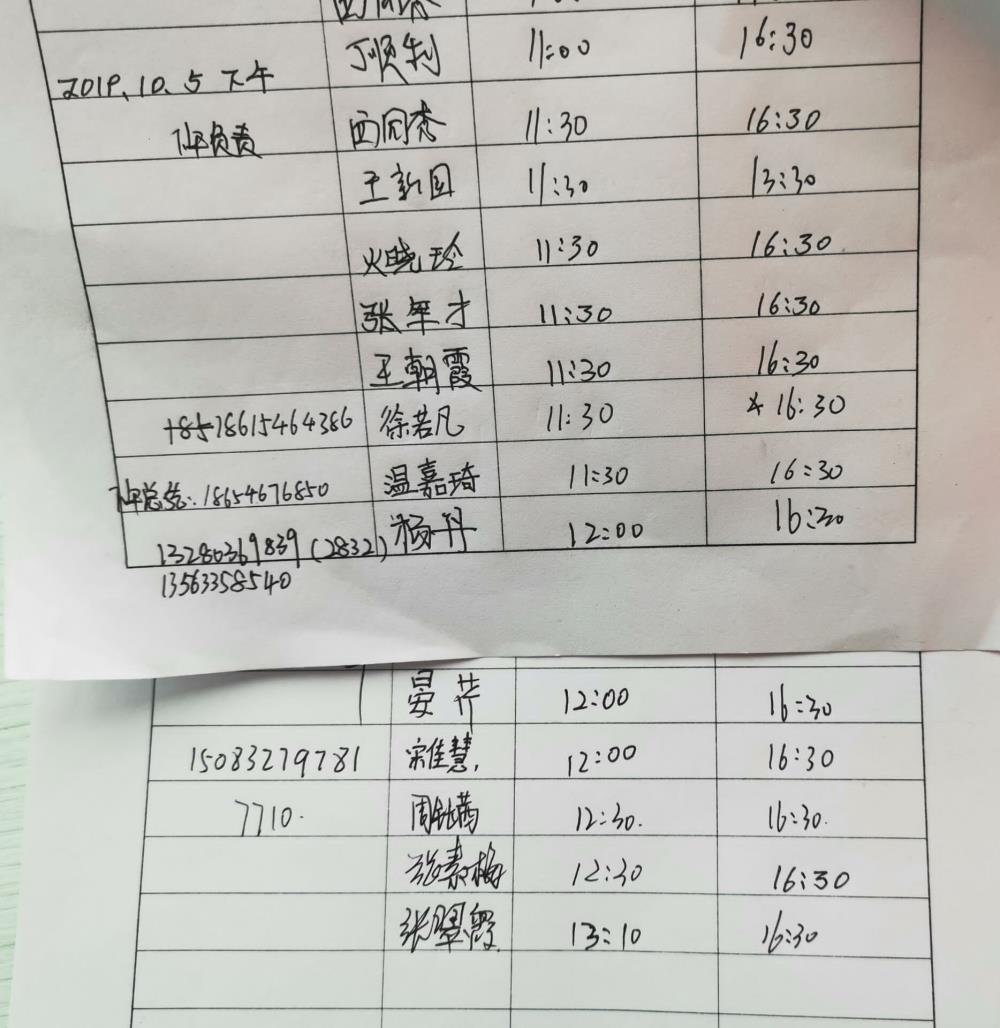 丁顺利 11:00 16:30
2019.10.5 下午
负责 西同秀 11:30 16:30
王新国 11:30 13:30
火晓玲 11:30 16:30
张军才 11:30 16:30
王朝霞 11:30 16:30
18578615464386 徐若凡 11:30 * 16:30
18654676850 温嘉琦 11:30 16:30
13280369839 (2832) 杨丹 12:00 16:30
13563358540
晏芹 12:00 16:30
15083279781 宋佳慧, 12:00 16:30
7710. 周 12:30. 16:30.
张素梅 12:30 16:30
张翠霞 13:10 16:30